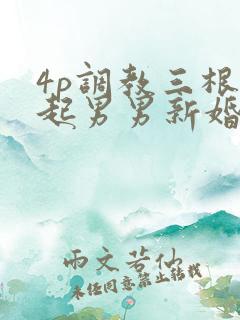 4p調教三根
起男男新婚
雨文若仙
未经同意禁止转载